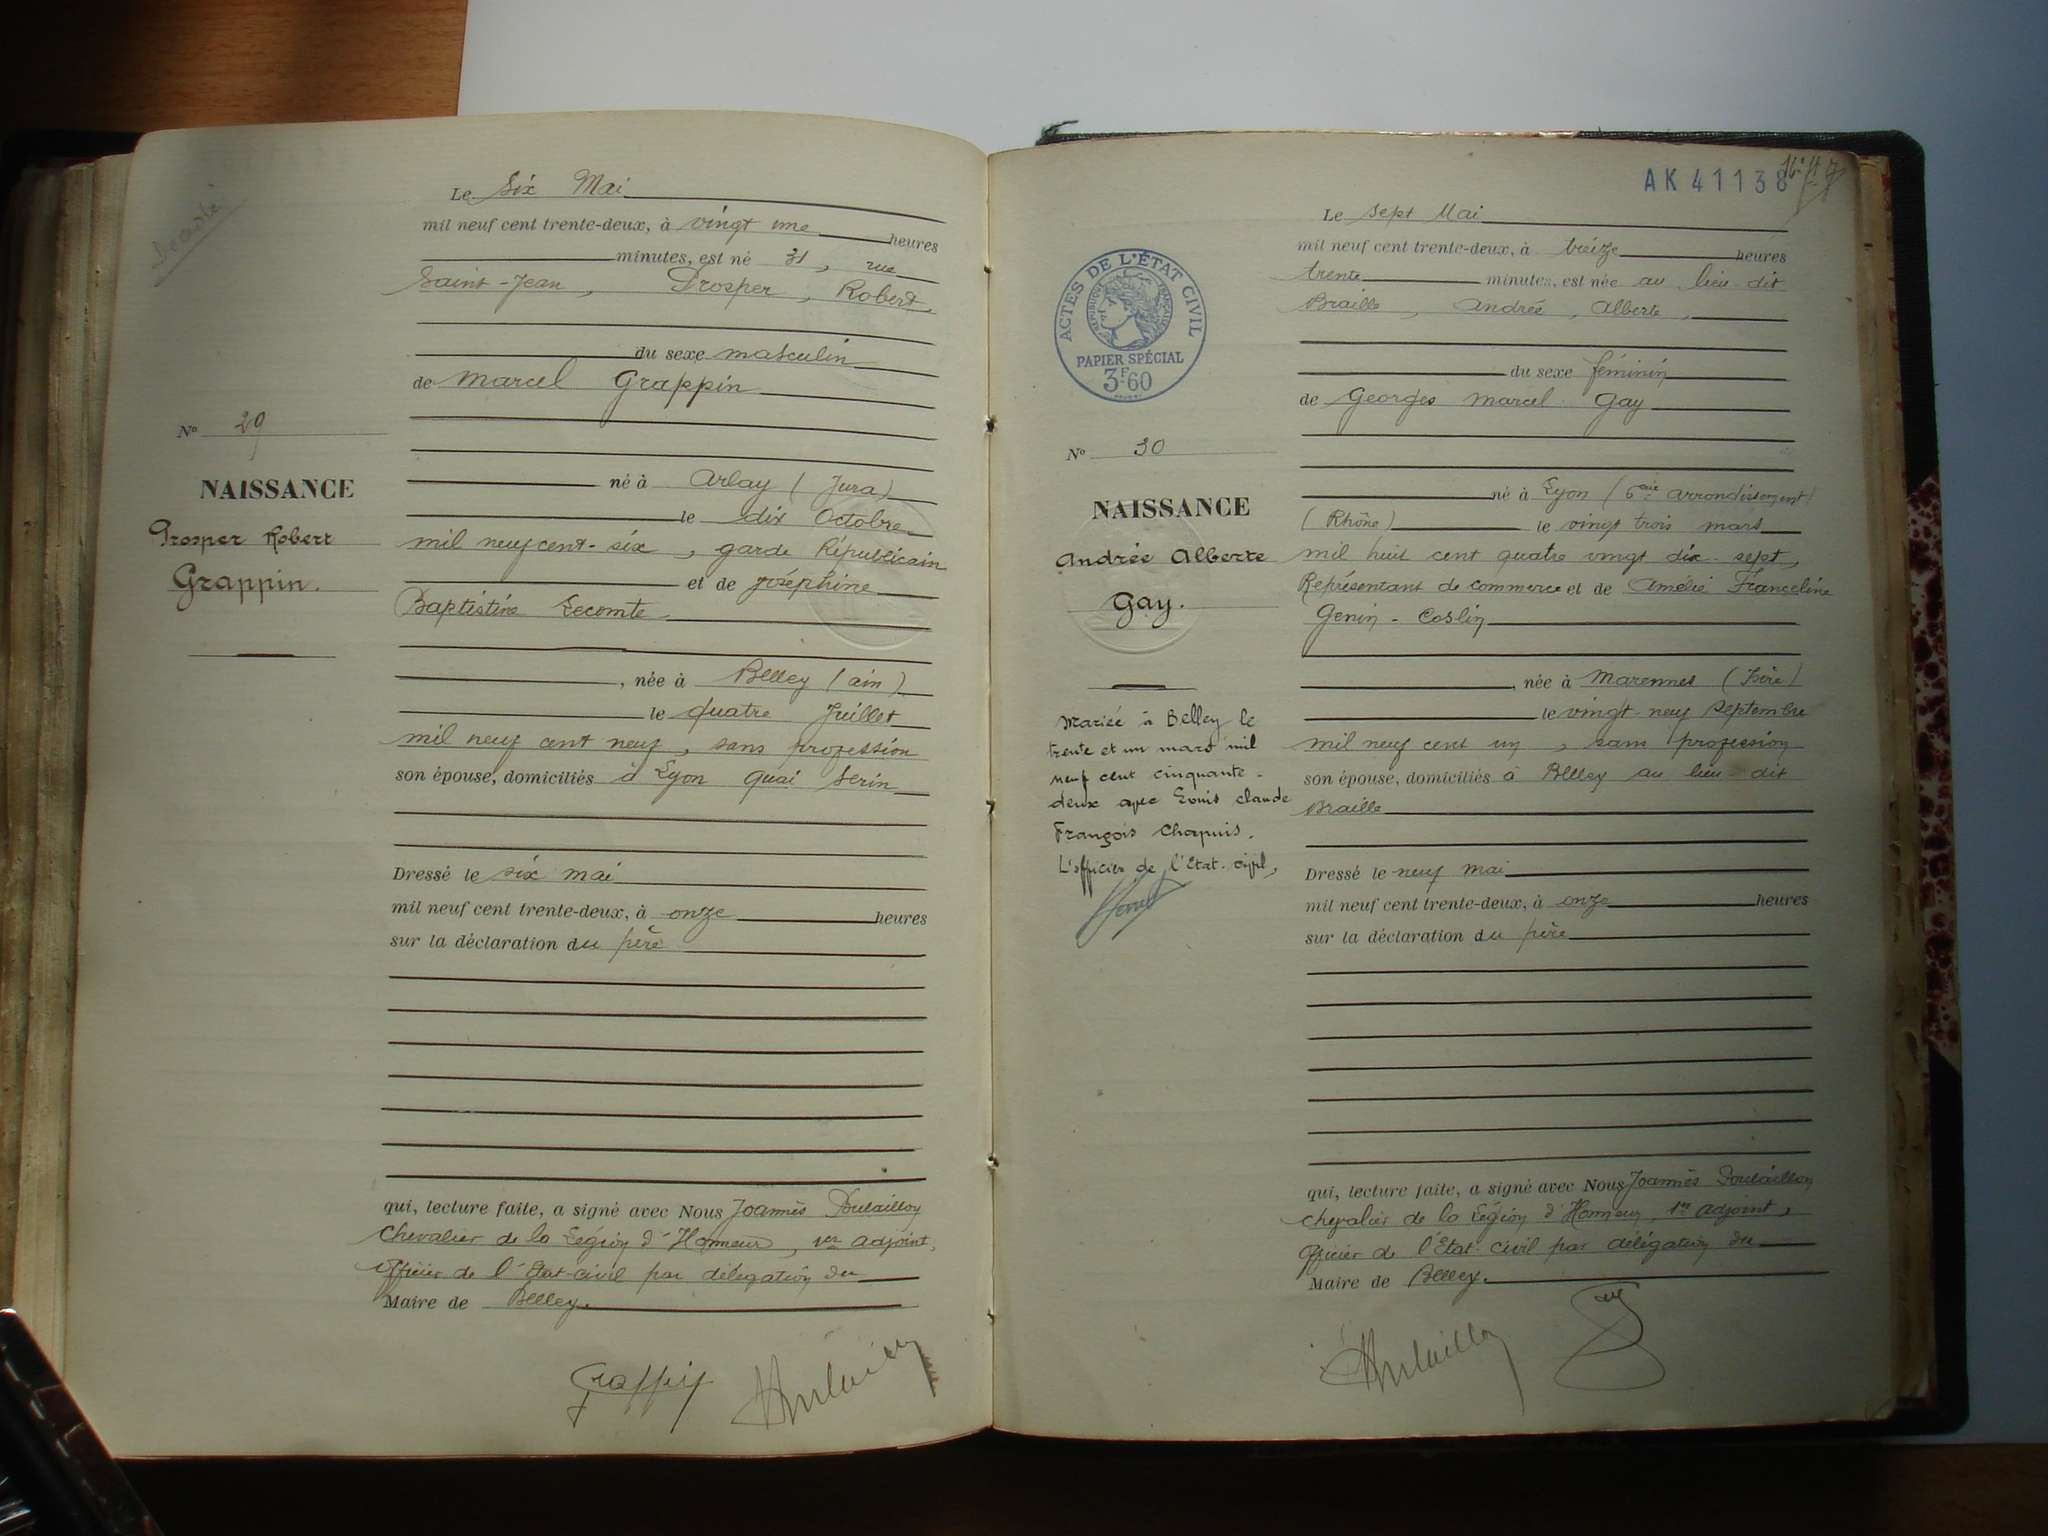 Décédé
Le Six Mai
mil neuf cent trente-deux, à vingt une heures
minutes, est né 31, rue
Saint-Jean, Prosper, Robert,
du sexe masculin
de Marcel Grappin
né à Arlay (Jura)
le dix Octobre
mil neuf cent-six, garde Républicain
et de Joséphine
Baptistine Lecomte
, née à Belley (ain)
le quatre Juillet
mil neuf cent neuf, sans profession
son épouse, domiciliés à Lyon quai Serin
Dressé le six mai
mil neuf cent trente-deux, à onze heures
sur la déclaration du père
qui, lecture faite, a signé avec Nous Joannès
Chevalier de la Légion d'Honneur, 1er adjoint,
officier de l'Etat-civil par délégation du
Maire de Belley.
Grappin
No 29
NAISSANCE
Prosper Robert
Grappin.
AK 41138
Le sept Mai
mil neuf cent trente-deux, à treize heures
trente minutes, est née au lieu dit
Braille, Andrée, Alberte,
du sexe féminin
de Georges Marcel Gay
né à Lyon (6ème arrondissement)
(Rhône) le vingt trois mars
mil huit cent quatre vingt dix-sept,
Représentant de commerce et de Amélie Franceline
Genin-Coslin
, née à Marennes (Isère)
le vingt-neuf Septembre
mil neuf cent un, sans profession
son épouse, domiciliés à Belley au lieu-dit
Braille
Dressé le neuf mai
mil neuf cent trente-deux, à onze heures
sur la déclaration du père
qui, lecture faite, a signé avec Nous Joannès
chevalier de la Légion d'Honneur, 1er adjoint,
officier de l'Etat-civil par délégation du
Maire de Belley.
ACTES DE L'ÉTAT CIVIL
RÉPUBLIQUE FRANÇAISE
PAPIER SPÉCIAL
3F60
No 30
NAISSANCE
Andrée Alberte
Gay.
Mariée à Belley le
trente et un mars mil
neuf cent cinquante-
deux avec Louis Claude
François Chapuis.
L'officier de l'Etat-civil,